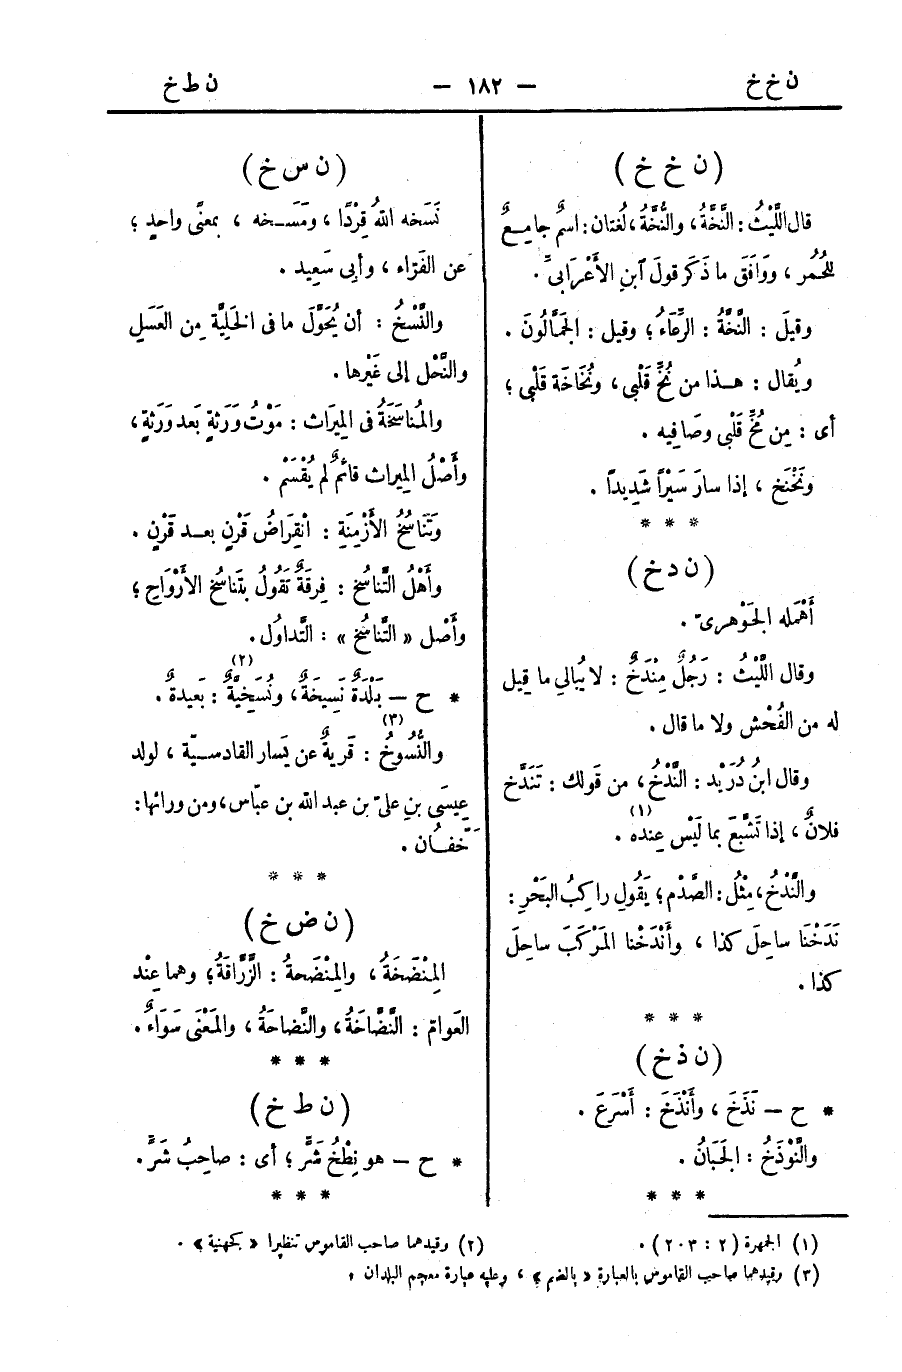 ن خ خ — ١٨٢ — ن ط خ
(ن خ خ)
قال اللَّيْثُ: النَّخَّةُ، والنُّخَّةُ، لُغتان: اسمٌ جامِعٌ
للحُمُر، ووَافَقَ ما ذَكَر قولَ ابنِ الأَعْرَابىِّ.
وقيلَ: النَّخَّةُ: الرِّعَاءُ؛ وقيل: الجَمَّالُونَ.
ويُقال: هـذا من نُخِّ قَلْبِى، ونُخَاخَة قَلْبِى؛
أى: مِن مُخِّ قَلْبِى وصَافِيه.
ونَخْنَخ، إذا سارَ سَيْرًا شَدِيداً.
* * *
(ن د خ)
أَهْمَله الجَوْهرىّ.
وقال اللَّيْثُ: رَجُلٌ مِنْدَخٌ: لا يُبالىِ ما قِيل
له من الفُحْش ولا ما قال.
وقال ابنُ دُرَيْد: النَّدْخُ، من قَولك: تَنَدَّخ
فلانٌ، إذا تَشَبَّعَ بما لَيْس عِندَه (١).
والنَّدْخُ، مِثْلُ: الصَّدْم؛ يَقُول راكِبُ البَحْرِ:
نَدَخْنَا ساحِلَ كذا، وأَنْدَخْنا المَرْكَبَ ساحِلَ
كذا.
* * *
(ن ذ خ)
* ح — نَذَخَ، وأَنْذَخَ: أَسْرَعَ.
والنَّوْذَخُ: الجَبَانُ.
* * *
(ن س خ)
نَسَخه اللهُ قِرْدًا، ومَسَـخه، بمعنًى واحدٍ؛
عن الفَرّاء، وأبى سَعِيد.
والنَّسْخُ: أن يُحَوَّلَ ما فى الخَلِيَّة مِن العَسَل
والنَّحْل إلى غَيْرها.
والمُناسَخَةُ فى المِيرَاث: مَوْتُ وَرَثةٍ بَعد وَرَثةٍ،
وأَصْلُ المِيراث قائمٌ لم يُقْسَمْ.
وتَنَاسُخُ الأَزْمِنَةِ: انْقِرَاضُ قَرْنٍ بعـد قَرْنٍ.
وأَهْلُ التَّناسُخ: فِرقَةٌ تَقُولُ بتَناسُخ الأرْوَاحِ؛
وأَصْل «التَّناسُخ»: التَّداوُل.
* ح — بَلْدَةٌ نَسِيخَةٌ، ونُسَخِيَّةٌ (٢): بَعيدةٌ.
والنُّسُوخُ (٣): قَريةٌ عن يَسار القادسـيّة، لولد
عِيسَى بنِ علىّ بن عبد الله بن عبّاس، ومن ورائها:
خَفَّان.
* * *
(ن ض خ)
المِنْضَخَةُ، والمِنْضَحةُ: الزَّرَّاقَةُ؛ وهما عِنْد
العَوامّ: النَّضَّاخَةُ، والنَّضاحَةُ، والمَعْنَى سَوَاءٌ.
* * *
(ن ط خ)
* ح — هو نِطْخُ شَرٍّ؛ أى: صاحِبُ شَرٍّ.
* * *
(١) الجمهرة (٢ : ٢٠٣). (٢) وقيدهما صاحب القاموس تنظيرا «كجهنية».
(٣) وقيدهما صاحب القاموس بالعبارة «بالضم»، وعليه عبارة معجم البلدان.